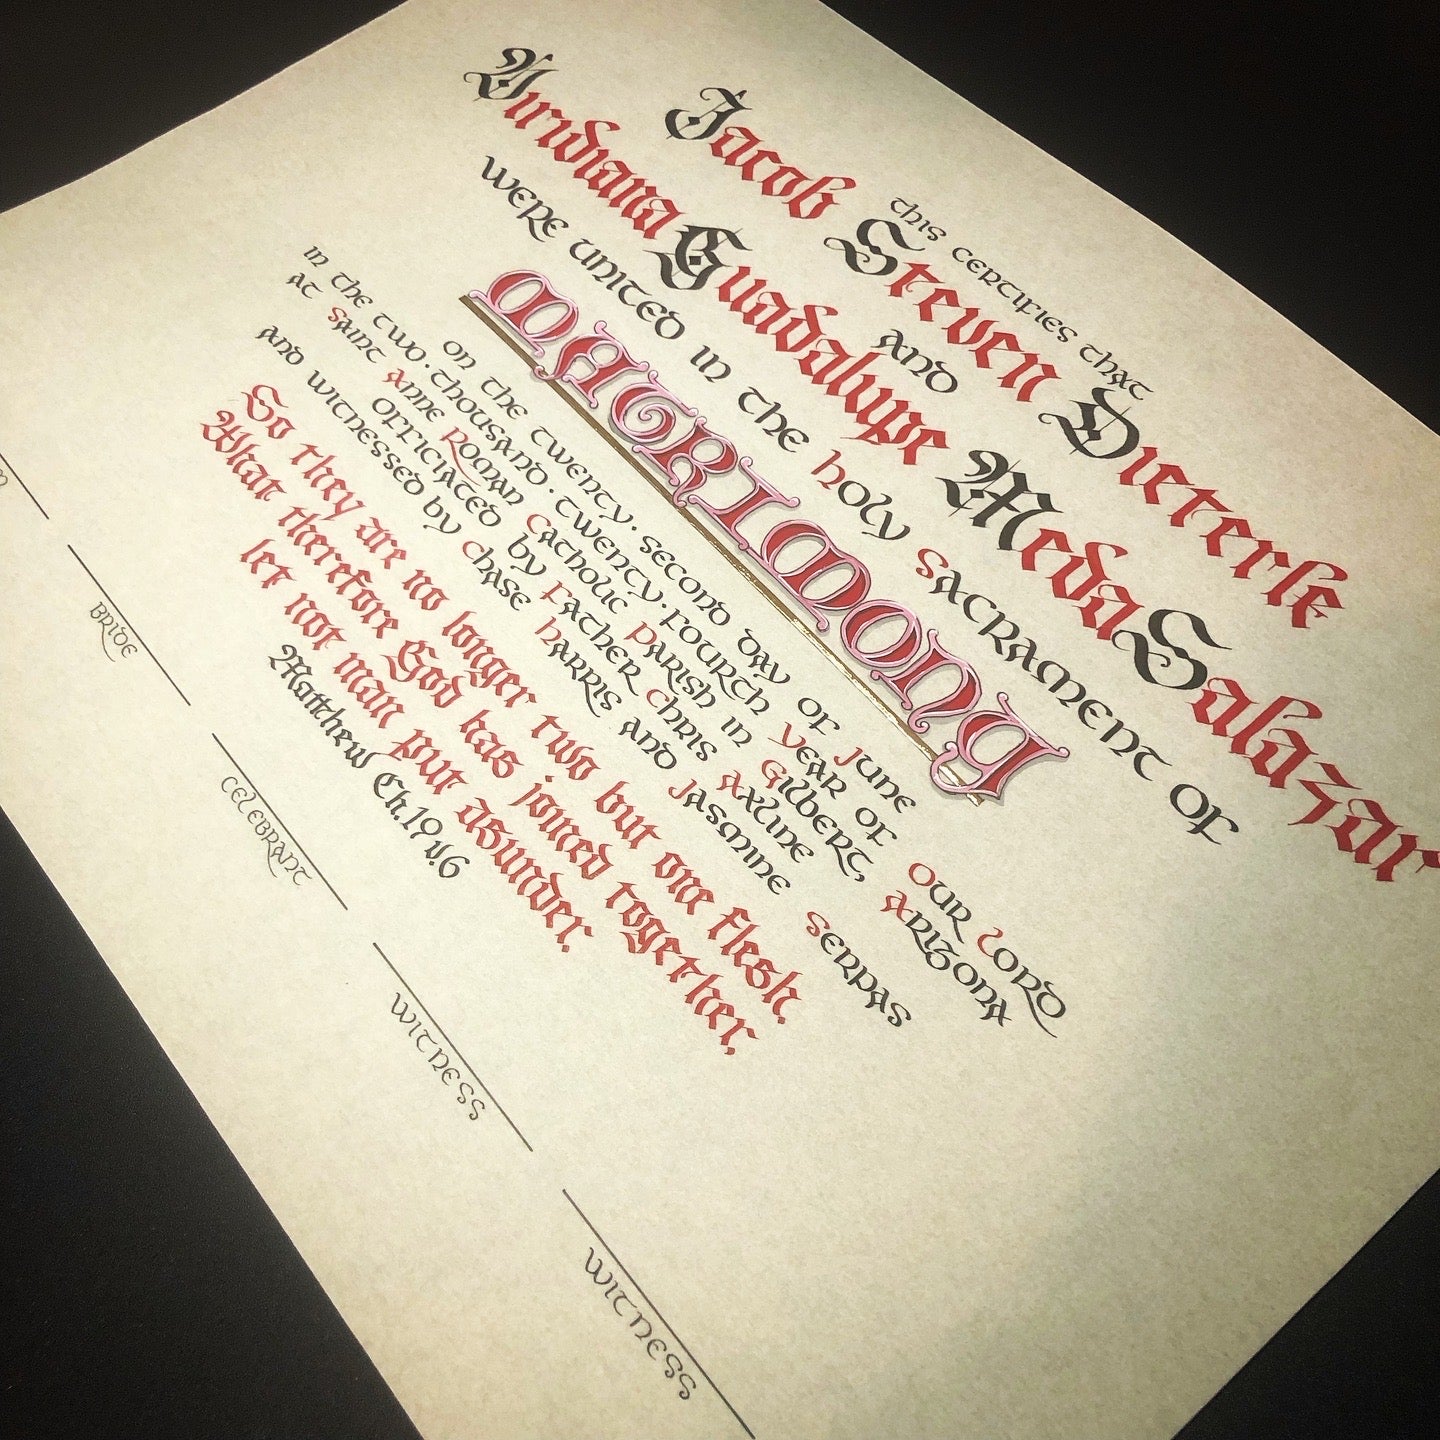 this certifies that
Jacob Steven Dieterle
and
Viridiana Guadalupe Meda Salazar
were united in the holy Sacrament of
MATRIMONY
on the twenty·second day of June
in the two·thousand·twenty·fourth year of Our Lord
at Saint Anne Roman Catholic Parish in Gilbert, Arizona
officiated by Father Chris Axline
and witnessed by Chase Harris and Jasmine Serpas
So they are no longer two but one flesh.
What therefore God has joined together,
let not man put asunder.
Matthew Ch.19 v.6
Bride
Celebrant
Witness
Witness